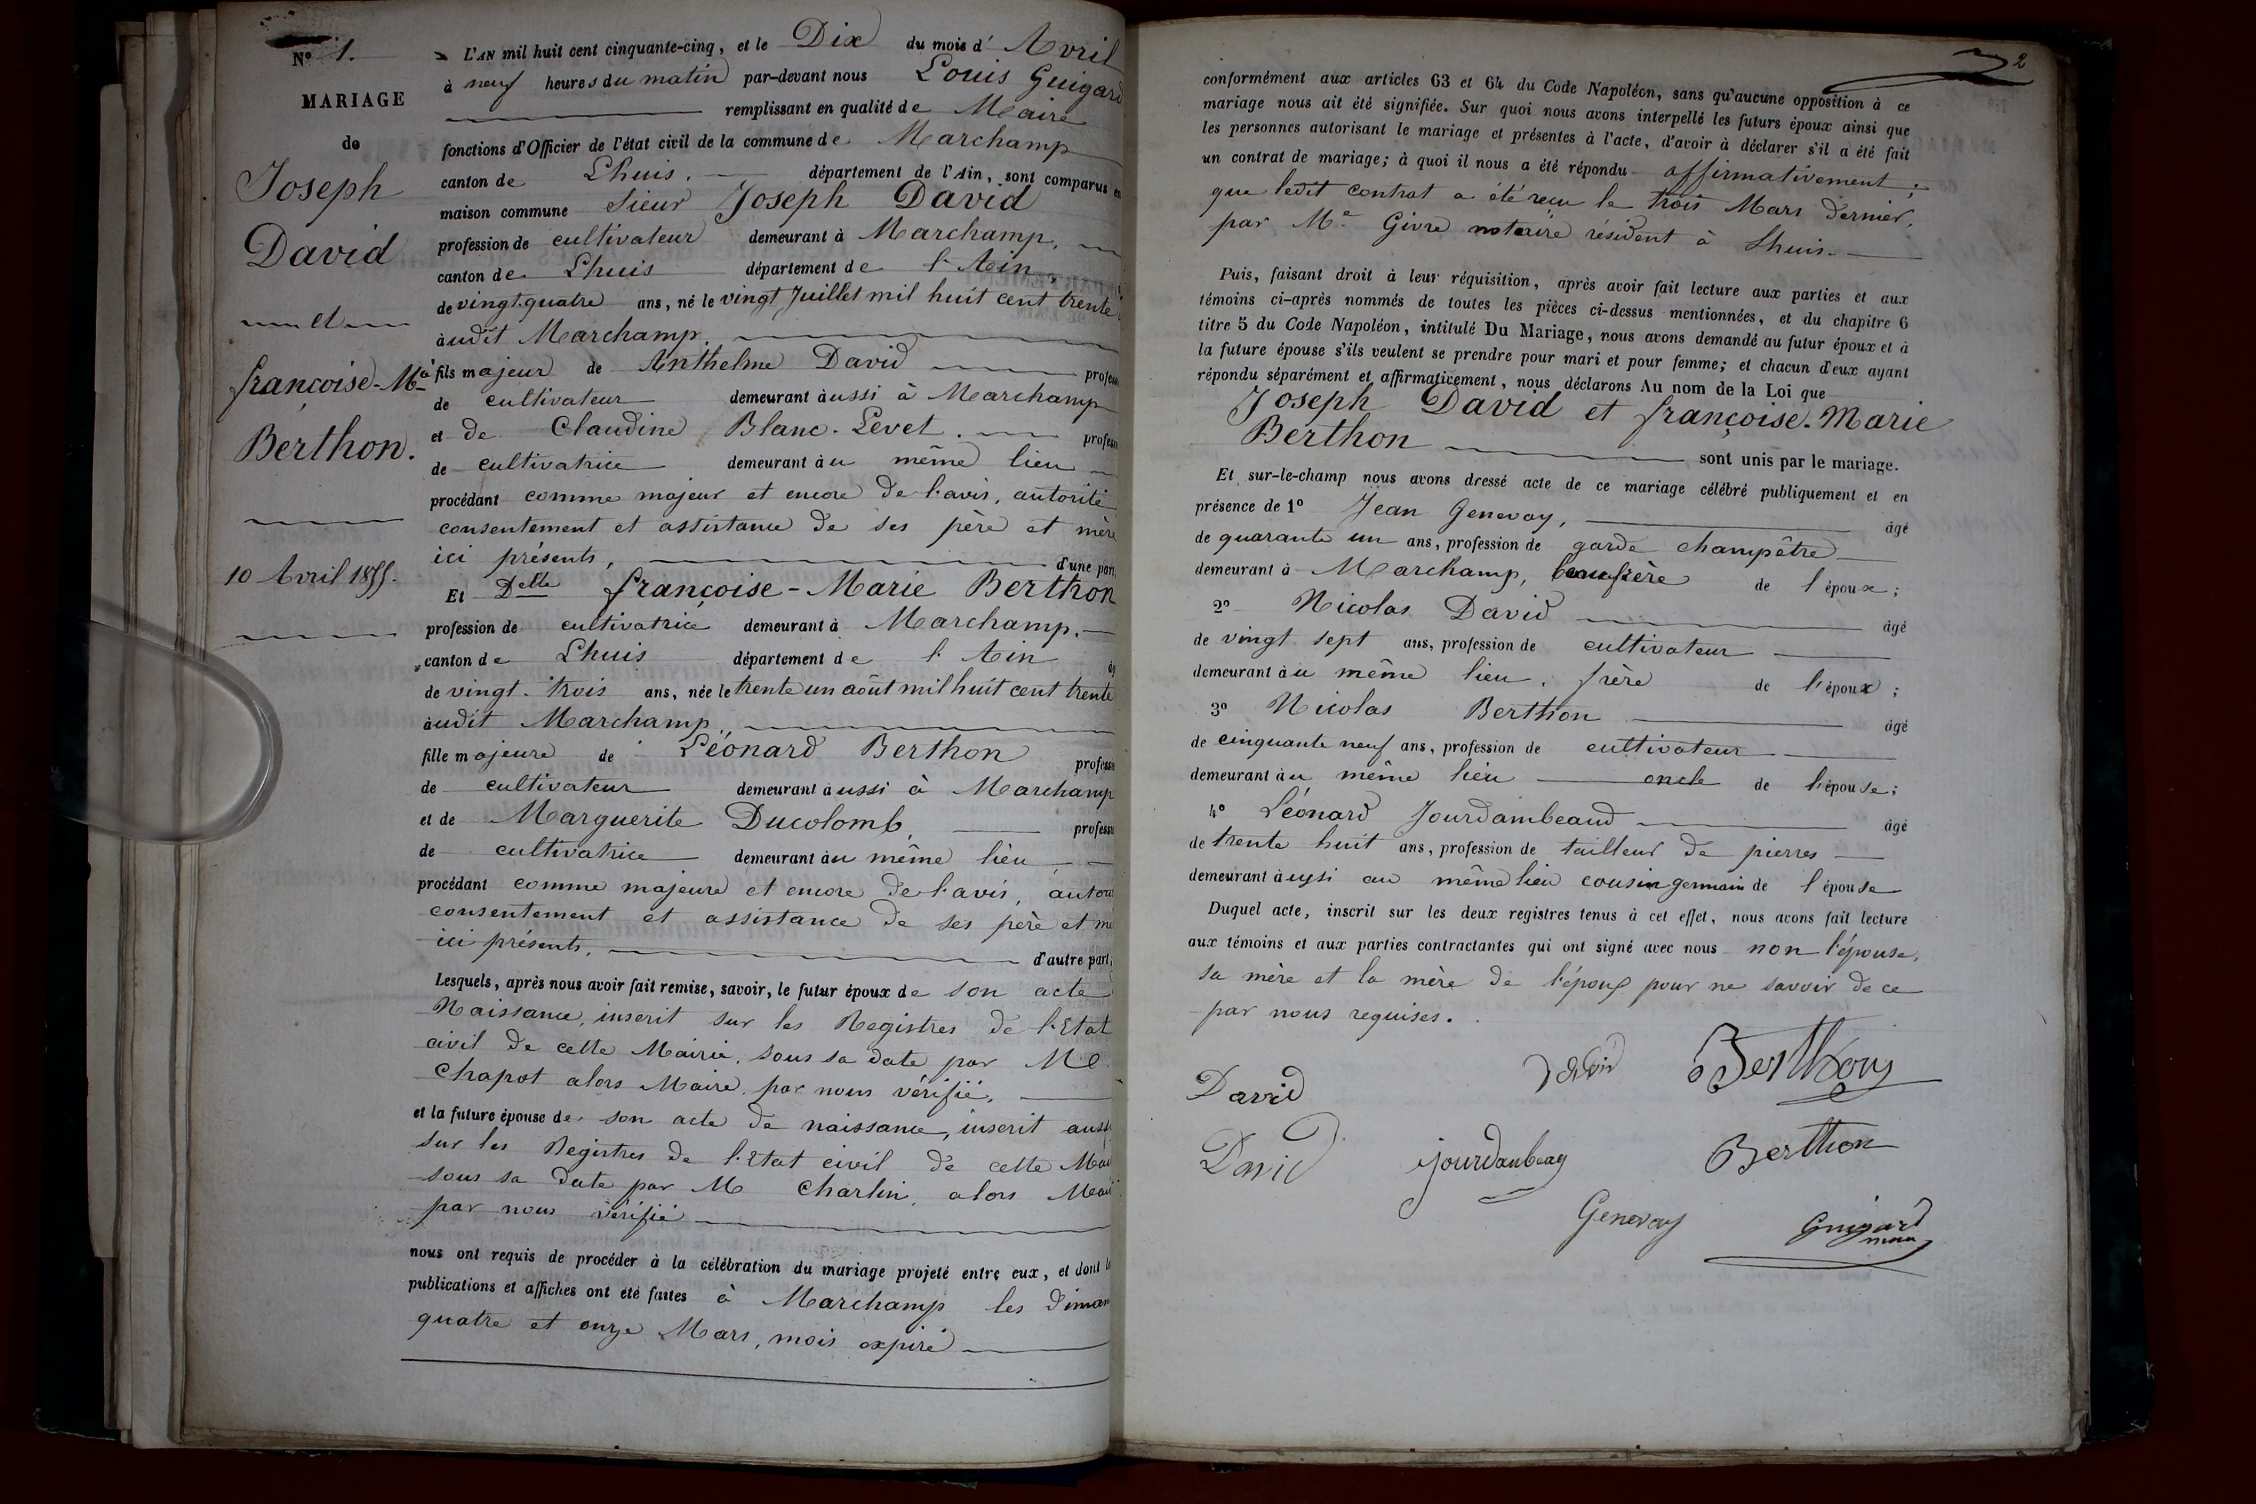 N° 1.
MARIAGE
de
Joseph
David
et
françoise-Mie
Berthon.
10 Avril 1855.
L'AN mil huit cent cinquante-cinq, et le Dix du mois d'Avril
à neuf heures du matin par-devant nous Louis Guigard
remplissant en qualité de Maire
fonctions d'Officier de l'état civil de la commune de Marchamp
canton de Lhuis. département de l'Ain, sont comparus en
maison commune Sieur Joseph David
profession de cultivateur demeurant à Marchamp,
canton de Lhuis département de l'Ain
de vingt-quatre ans, né le vingt Juillet mil huit cent trente
audit Marchamp.
fils majeur de Anthelme David profess
de cultivateur demeurant aussi à Marchamp
et de Claudine Blanc-Levet. profess
de cultivatrice demeurant au même lieu
procédant comme majeur et encore de l'avis, autorité
consentement et assistance de ses père et mère
ici présents, d'une part,
Et Delle françoise-Marie Berthon
profession de cultivatrice demeurant à Marchamp.
canton de Lhuis département de l'Ain
de vingt-trois ans, née le trente un août mil huit cent trente
audit Marchamp.
fille majeure de Léonard Berthon profess
de cultivateur demeurant aussi à Marchamp
et de Marguerite Ducolomb, profess
de cultivatrice demeurant au même lieu
procédant comme majeure et encore de l'avis, autor
consentement et assistance de ses père et m
ici présents, d'autre part,
Lesquels, après nous avoir fait remise, savoir, le futur époux de son acte
Naissance, inscrit sur les Registres de l'Etat
civil de cette Mairie, sous sa date par M
Chapot alors Maire, par nous vérifié,
et la future épouse de son acte de naissance, inscrit auss
sur les Registres de l'Etat civil de cette Mai
sous sa date par M Charlin, alors Mai
par nous vérifié
nous ont requis de procéder à la célébration du mariage projeté entre eux, et dont l
publications et affiches ont été faites à Marchamp les diman
quatre et onze Mars, mois expiré
2
conformément aux articles 63 et 64 du Code Napoléon, sans qu'aucune opposition à ce
mariage nous ait été signifiée. Sur quoi nous avons interpellé les futurs époux ainsi que
les personnes autorisant le mariage et présentes à l'acte, d'avoir à déclarer s'il a été fait
un contrat de mariage; à quoi il nous a été répondu affirmativement;
que ledit contrat a été recu le trois Mars dernier,
par Me Givre notaire résident à Lhuis.
Puis, faisant droit à leur réquisition, après avoir fait lecture aux parties et aux
témoins ci-après nommés de toutes les pièces ci-dessus mentionnées, et du chapitre 6
titre 5 du Code Napoléon, intitulé Du Mariage, nous avons demandé au futur époux et à
la future épouse s'ils veulent se prendre pour mari et pour femme; et chacun d'eux ayant
répondu séparément et affirmativement, nous déclarons Au nom de la Loi que
Joseph David et françoise-Marie
Berthon sont unis par le mariage.
Et sur-le-champ nous avons dressé acte de ce mariage célébré publiquement et en
présence de 1° Jean Genevay, âgé
de quarante un ans, profession de garde champêtre
demeurant à Marchamp, beaufrère de l'époux;
2° Nicolas David âgé
de vingt sept ans, profession de cultivateur
demeurant au même lieu, frère de l'époux;
3° Nicolas Berthon âgé
de cinquante neuf ans, profession de cultivateur
demeurant au même lieu oncle de l'épouse;
4° Léonard Jourdambeaud âgé
de trente huit ans, profession de tailleur de pierres
demeurant aussi au même lieu cousin germain de l'épouse
Duquel acte, inscrit sur les deux registres tenus à cet effet, nous avons fait lecture
aux témoins et aux parties contractantes qui ont signé avec nous non l'épouse,
sa mère et la mère de l'époux pour ne savoir de ce
par nous requises.
David David Berthon
David Berthon
Genevay Guigard